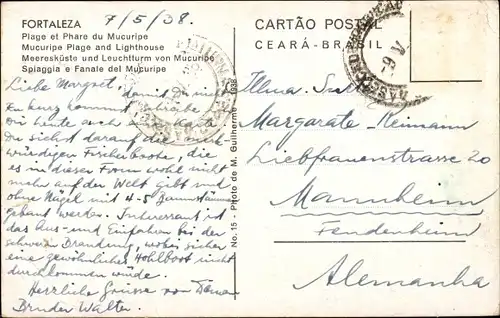 FORTALEZA 7/5/38.
Plage et Phare du Mucuripe
Mucuripe Plage and Lighthouse
Meeresküste und Leuchtturm von Mucuripe
Spiaggia e Fanale del Mucuripe
Liebe Margret, damit Du nicht
zu kurz kommst schreibe ich
Dir heute auch Karte.
Du siehst darauf die merk-
würdigen Fischerboote, die
es in dieser Form wohl nicht
mehr auf der Welt gibt und
ohne Nägel mit 4-5 Baumstämmen
gebaut werden. Interessant ist
das Aus- und Einfahren bei der
schweren Brandung, wobei sicher
eine gewöhnliches Holzboot nicht
durchkommen würde.
Herzliche Grüsse von Deinem
Bruder Walter.
No. 15 - Photo de M. Guilherme - 1938
CARTÃO POSTAL
CEARÁ-BRASIL
9 V
Illma. Snrta.
Margarate Reimann
Liebfrauenstrasse 20
Mannheim
Feudenheim
Alemanha